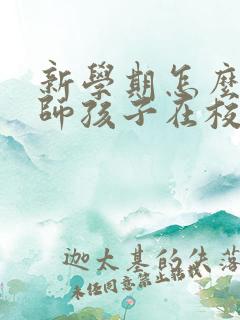 新學期怎麼
師孩子在校
迦太基的失落
未經同意禁止轉載